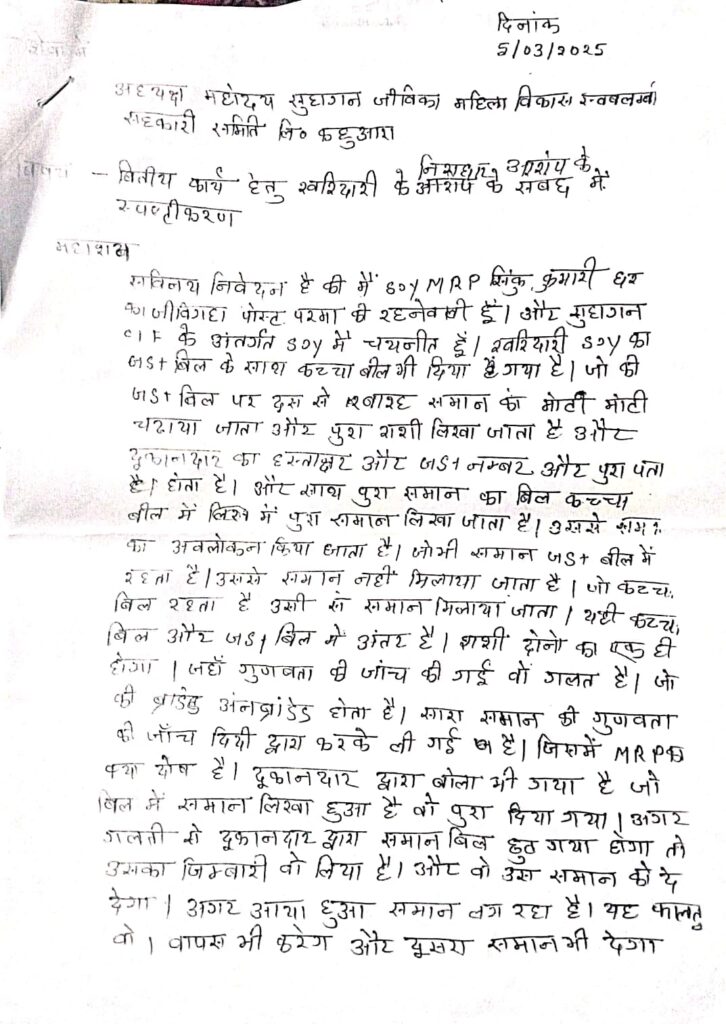 दिनांक
5/03/2025
सेवा में
अध्यक्ष महोदय सुहागन जीविका महिला विकास स्वबलम्बी
सहकारी समिति लि० कहुआरा
विषय - वितीय कार्य हेतु खरिदारी के निराधार आरोप के
आरोप के सबंध में
स्पष्टीकरण
महाशय
सविनय निवेदन है की मैं SJY MRP रिंकु कुमारी घर
काजीबिगहा पोस्ट परमा की रहनेवाली हूँ। और सुहागन
CLF के अंतर्गत SJY में चयनीत हूँ। खरिदारी SJY का
GST बिल के साथ कच्चा बील भी दिया है गया है। जो की
GST बिल पर दस से बारह समान का मोटी मोटी
चढाया जाता और पुरा राशी लिखा जाता है और
दुकानदार का हस्ताक्षर और GST नम्बर और पुरा पता
है। होता है। और साथ पुरा समान का बिल कच्चा
बील में लिख में पुरा समान लिखा जाता है। उससे समान
का अवलोकन किया जाता है। जोभी समान GST बील में
रहता है। उससे समान नहीं मिलाया जाता है। जो कच्चा
बिल रहता है उसी से समान मिलाया जाता। यही कच्चा
बिल और GST बिल में अंतर है। राशी दोनो का एक ही
होगा। जहाँ गुणवता की जांच की गई वों गलत है। जो
की ब्रांडेड अंनब्रांडेड होता है। सारा समान की गुणवता
की जाँच दिदी द्वारा करके ली गई है। जिसमें MRP का
क्या दोष है। दूकानदार द्वारा बोला भी गया है जो
बिल में समान लिखा हुआ है वो पुरा दिया गया। अगर
गलती से दूकानदार द्वारा समान बिल छुट गया होगा तो
उसका जिम्बारी वो लिया है। और वो उस समान को दे
देगा। अगर आया हुआ समान लग रहा है। यह फालतु
वो। वापस भी करेग और दूसरा समान भी देगा